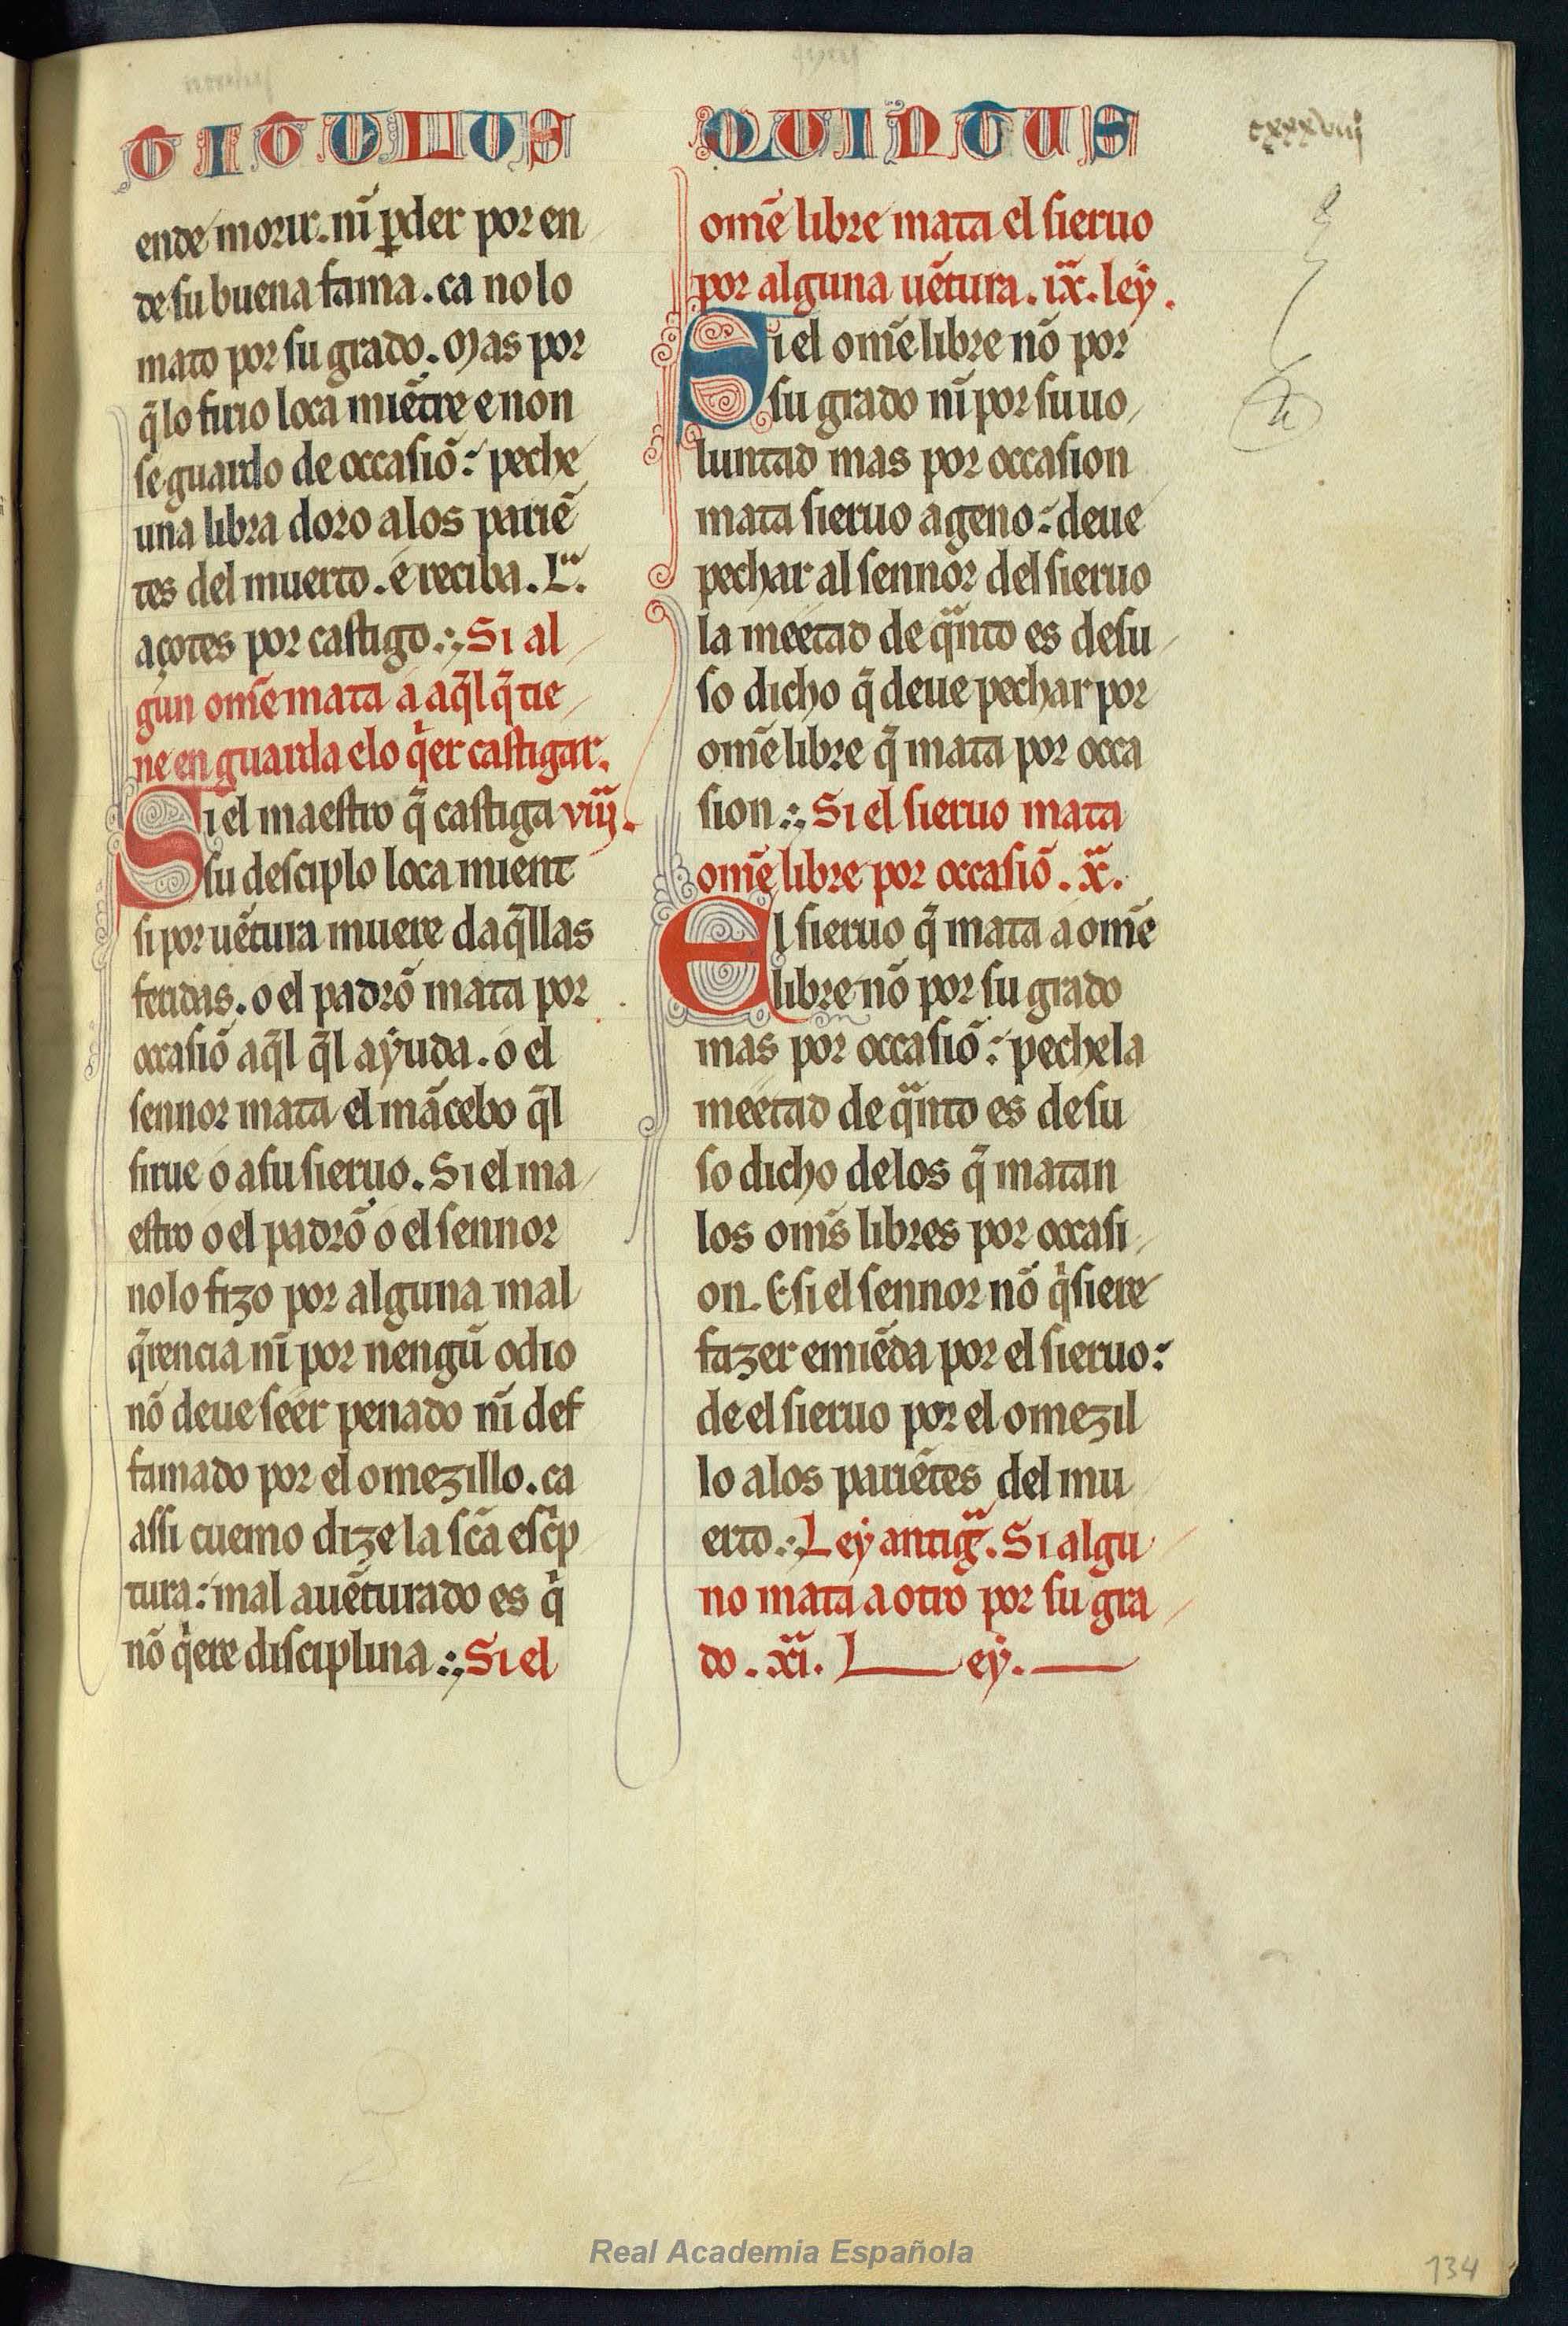 TITULUS QUINTUS
cxxxviij
ende morir. nĩ p̱der por en
de su buena fama. ca no lo
mato por su grado. Mas por
q̃ lo firio loca miẽtre e non
se guardo de occasiõ: peche
una libra doro a los pariẽ
tes del muerto. é reciba. L.ª
açotes por castigo. Si al
gun om̃e mata á aq̃l q̃ tie
ne en guarda e lo q̃er castigar.
Si el maestro q̃ castiga viij.
su desciplo loca mient
si por uẽtura muere daq̃llas
feridas. o el padrõ mata por
occasiõ aq̃l q̃l aẏuda. ó el
sennor mata el mãcebo q̃l
sirue ó a su sieruo. Si el ma
estro o el padrõ ó el sennor
no lo fizo por alguna mal
q̃rencia nĩ por nengũ odio
nõ deue seer penado nĩ def
famado por el omezillo. ca
assi cuemo dize la sc̃a esc̃p
tura: mal auẽturado es q̃
nõ q̃ere disciplina. Si el
om̃e libre mata el sieruo
por alguna uẽtura. ix.ª leẏ.
Si el om̃e libre nõ por
su grado nĩ por su uo
luntad mas por occasion
mata sieruo ageno: deue
pechar al sennor del sieruo
la meetad de qªnto es desu
so dicho q̃ deue pechar por
om̃e libre q̃ mata por occa
sion. Si el sieruo mata
om̃e libre por occasiõ. x.ª
El sieruo q̃ mata a om̃e
libre nõ por su grado
mas por occasiõ: peche la
meetad de qªnto es de su
so dicho de los q̃ matan
los om̃s libres por occasi
on. E si el sennor nõ q̃siere
fazer emiẽda por el sieruo:
de el sieruo por el omezil
lo a los pariẽtes del mu
erto. Leẏ antigª. Si algu
no mata a otro por su gra
do. xi.ª Leẏ.
134
Real Academia Española